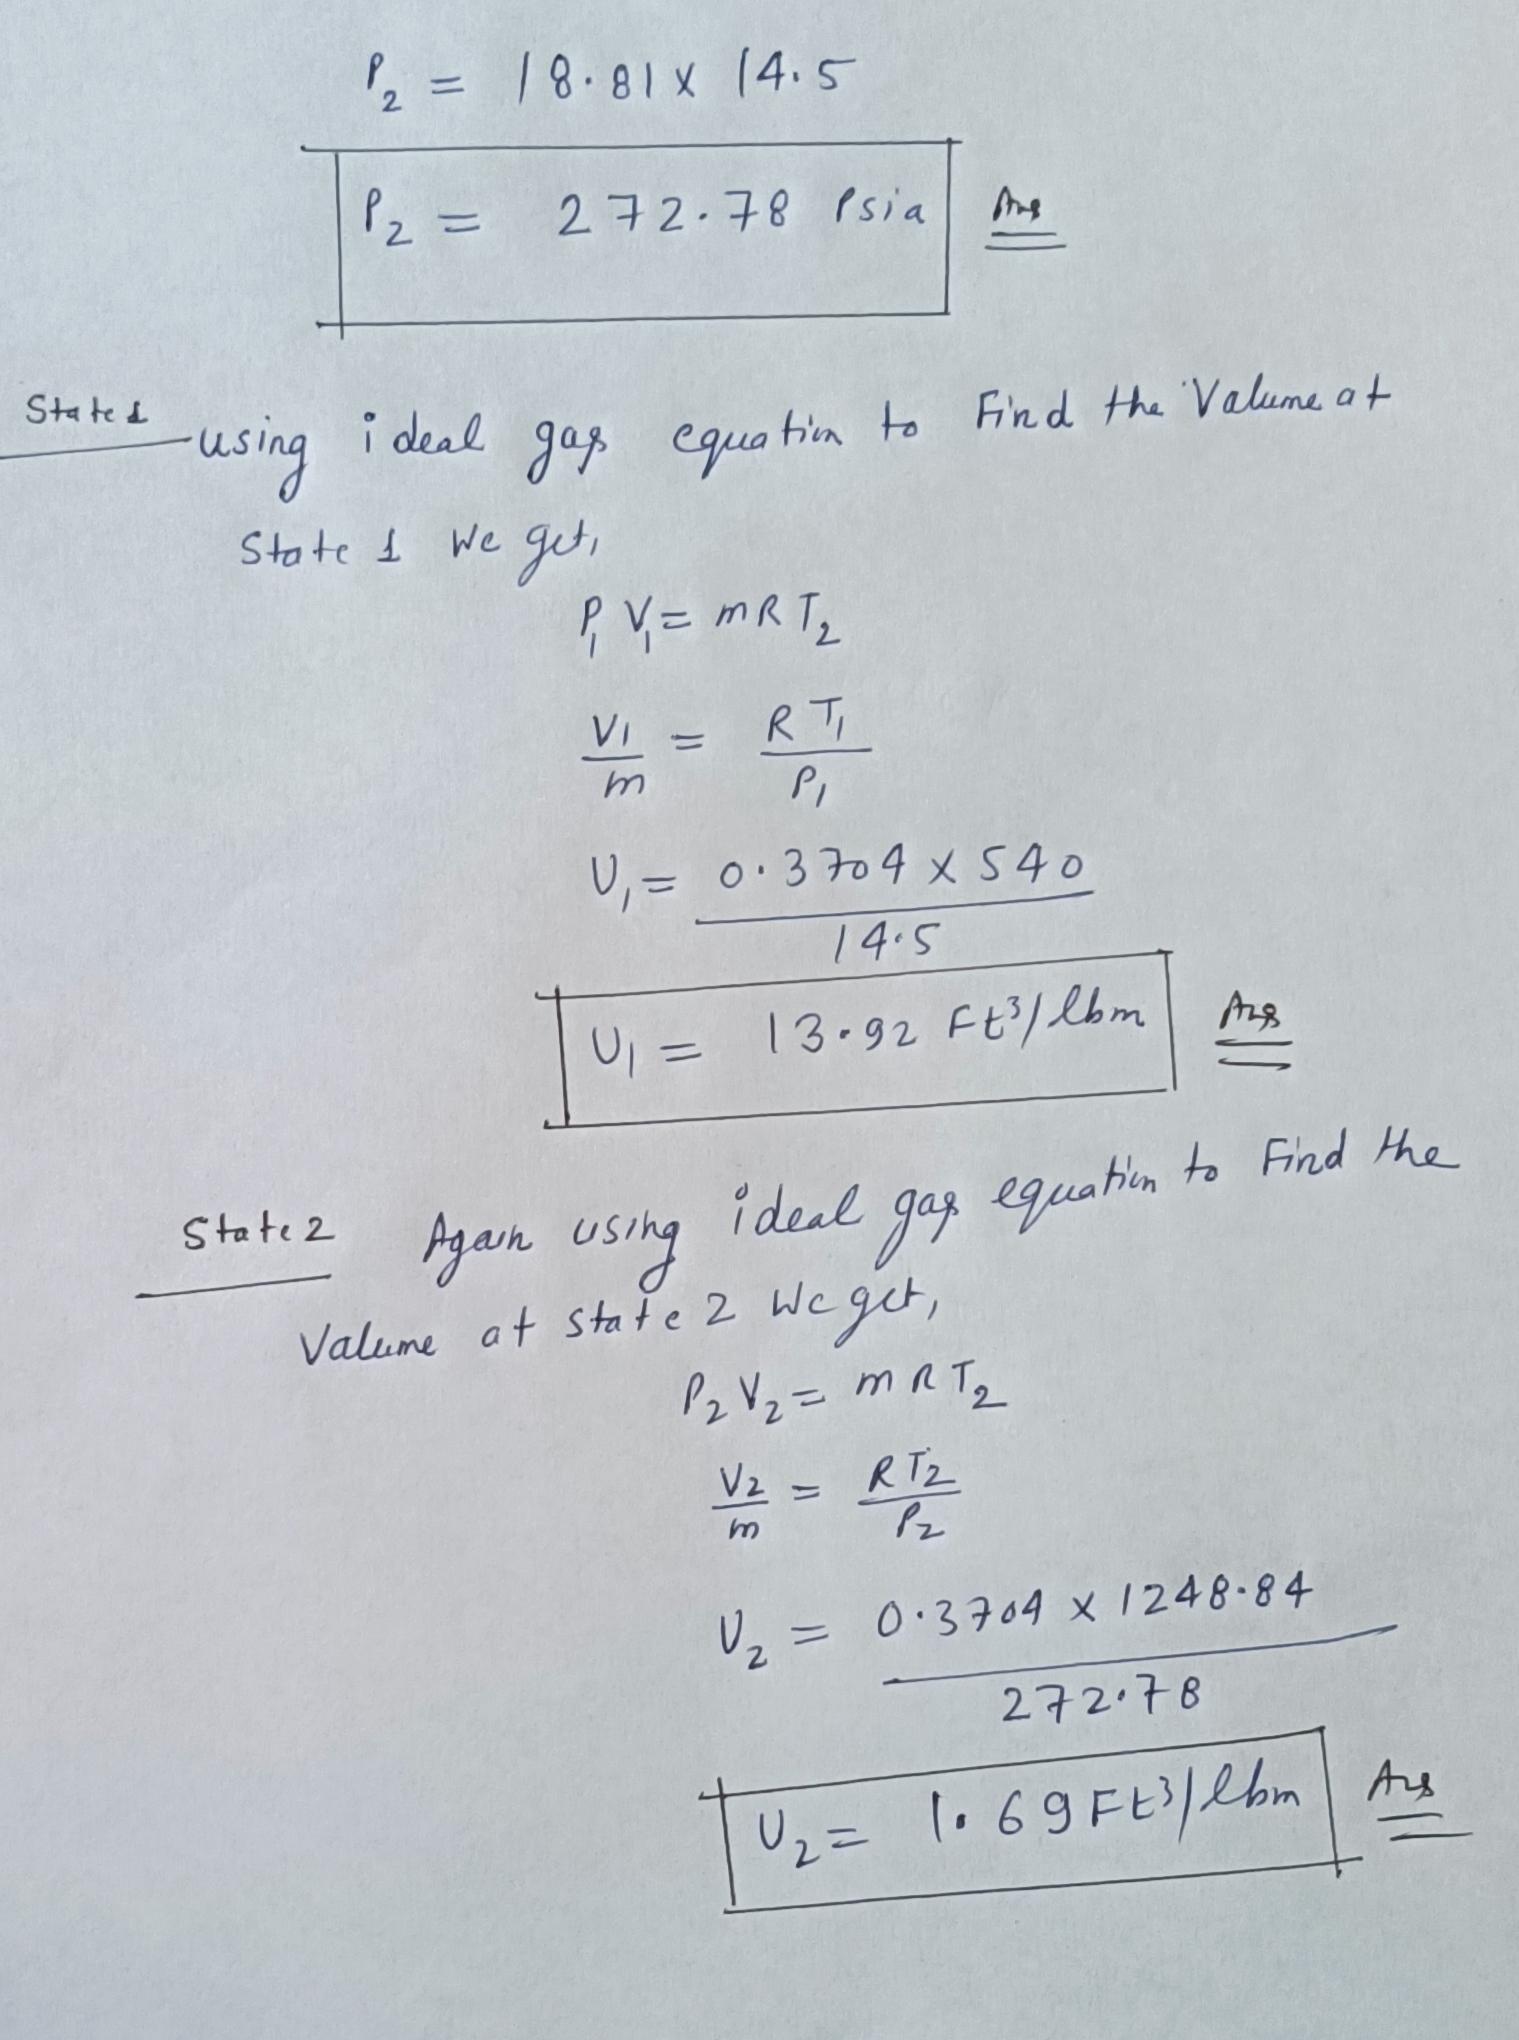 P₂ = 18.81 x 14.5
P₂ = 272.78 Psia Ans
State 1 using ideal gas equation to Find the Valume at
State 1 We get,
P₁ V₁ = mRT₂
V₁/m = RT₁/P₁
υ₁ = 0.3704 x 540 / 14.5
υ₁ = 13.92 Ft³/lbm Ans
State 2 Again using ideal gas equation to Find the
Valume at state 2 We get,
P₂ V₂ = mRT₂
V₂/m = RT₂/P₂
υ₂ = 0.3704 x 1248.84 / 272.78
υ₂ = 1.69 Ft³/lbm Ans